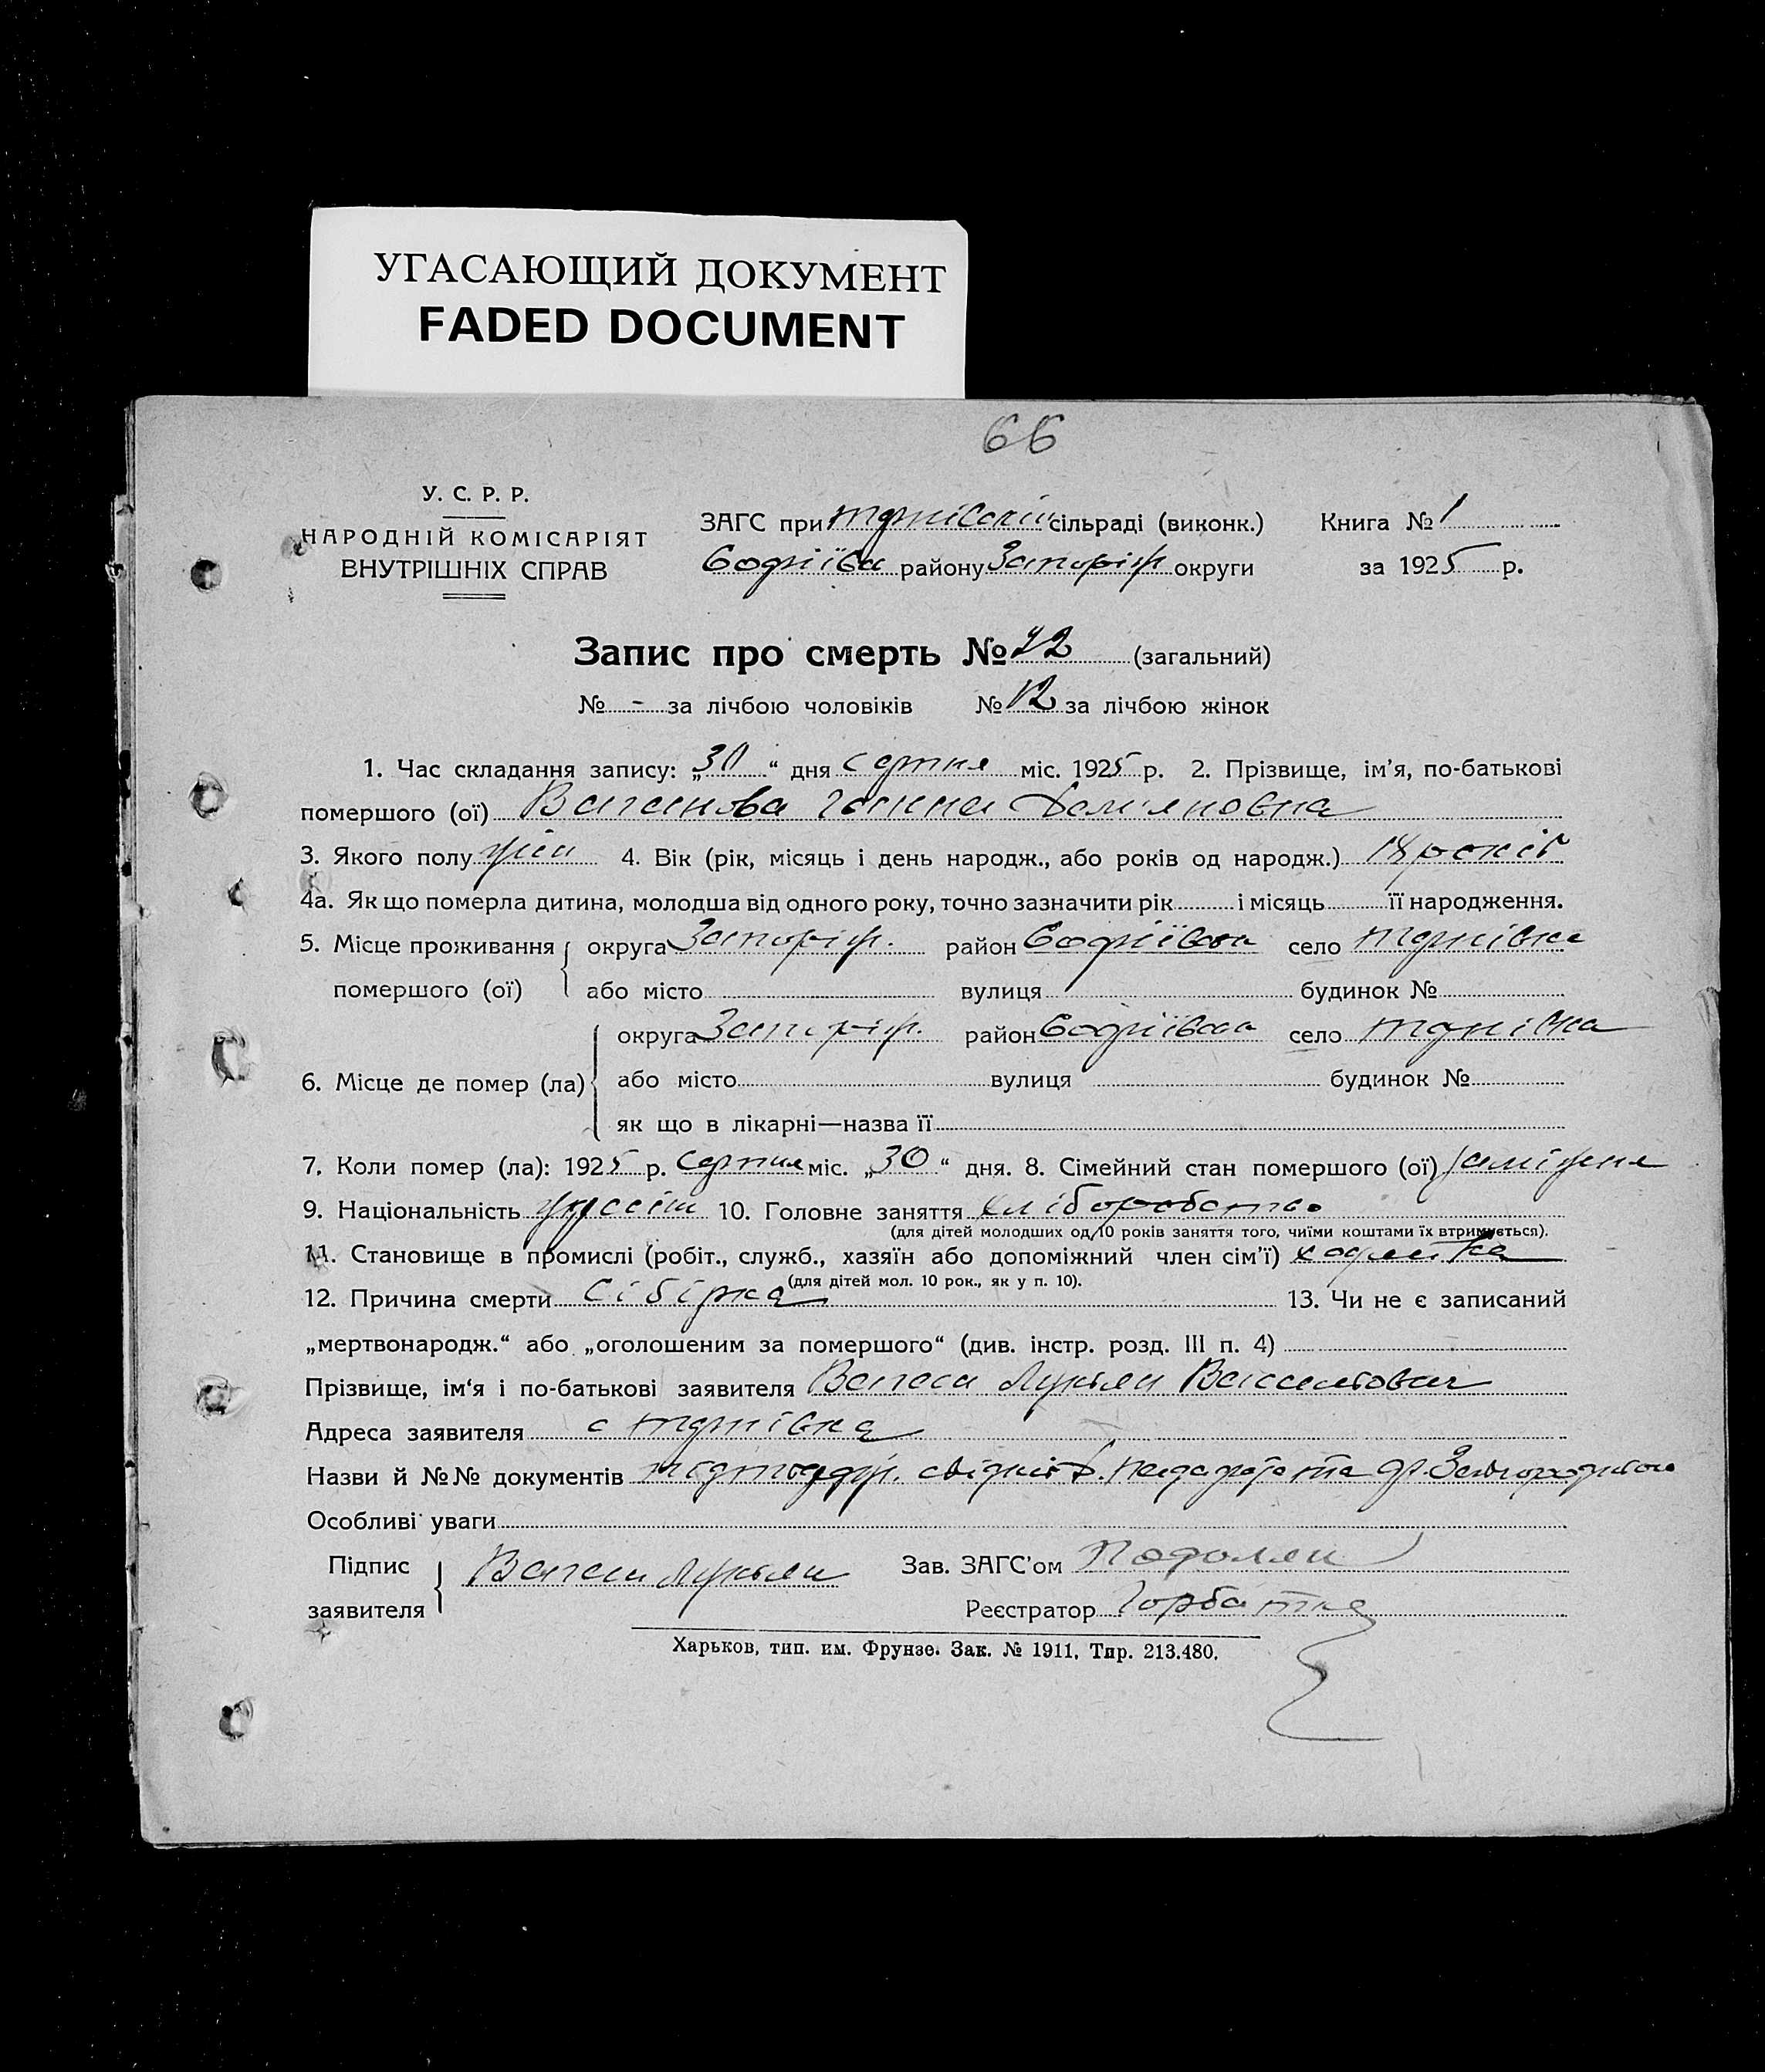 УГАСАЮЩИЙ ДОКУМЕНТ
FADED DOCUMENT
66
У. С. Р. Р.
НАРОДНІЙ КОМІСАРІЯТ
ВНУТРІШНІХ СПРАВ
ЗАГС при сільраді (виконк.)
Софіївск району Запоріж округи
Книга № 1
за 1925 р.
Запис про смерть № 22 (загальний)
№ - за лічбою чоловіків № 12 за лічбою жінок
1. Час складання запису: „30“ дня серпня міс. 1925 р. 2. Прізвище, ім’я, по-батькові
помершого (ої) Ганна Дем'яновна
3. Якого полу жін 4. Вік (рік, місяць і день народж., або років од народж.) років
4а. Як що померла дитина, молодша від одного року, точно зазначити рік і місяць її народження.
5. Місце проживання округа Запоріж. район село
помершого (ої) або місто вулиця будинок №
округа Запоріж. район село
6. Місце де помер (ла) або місто вулиця будинок №
як що в лікарні—назва її
7. Коли помер (ла): 1925 р. Серпня міс. „30“ дня. 8. Сімейний стан помершого (ої) заміжня
9. Національність 10. Головне заняття хліборобство
(для дітей молодших од 10 років заняття того, чиїми коштами їх втримується).
11. Становище в промислі (робіт., служб., хазяїн або допоміжний член сім’ї)
(для дітей мол. 10 рок., як у п. 10).
12. Причина смерти Сібірка 13. Чи не є записаний
„мертвонародж.“ або „оголошеним за помершого“ (див. інстр. розд. III п. 4)
Прізвище, ім‘я і по-батькові заявителя Лукян
Адреса заявителя с
Назви й №№ документів
Особливі уваги
Підпис Лукян Зав. ЗАГС’ом Подолян
заявителя Реєстратор Горбатко
Харьков, тип. им. Фрунзе. Зак. № 1911. Тир. 213.480.